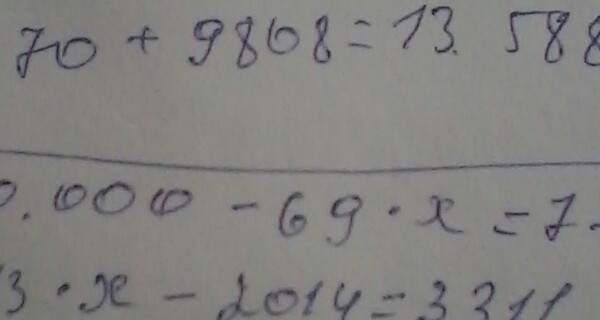 70 + 9868 = 13. 588
0.000 - 69 · x = 7.
3 · x - 2014 = 3311